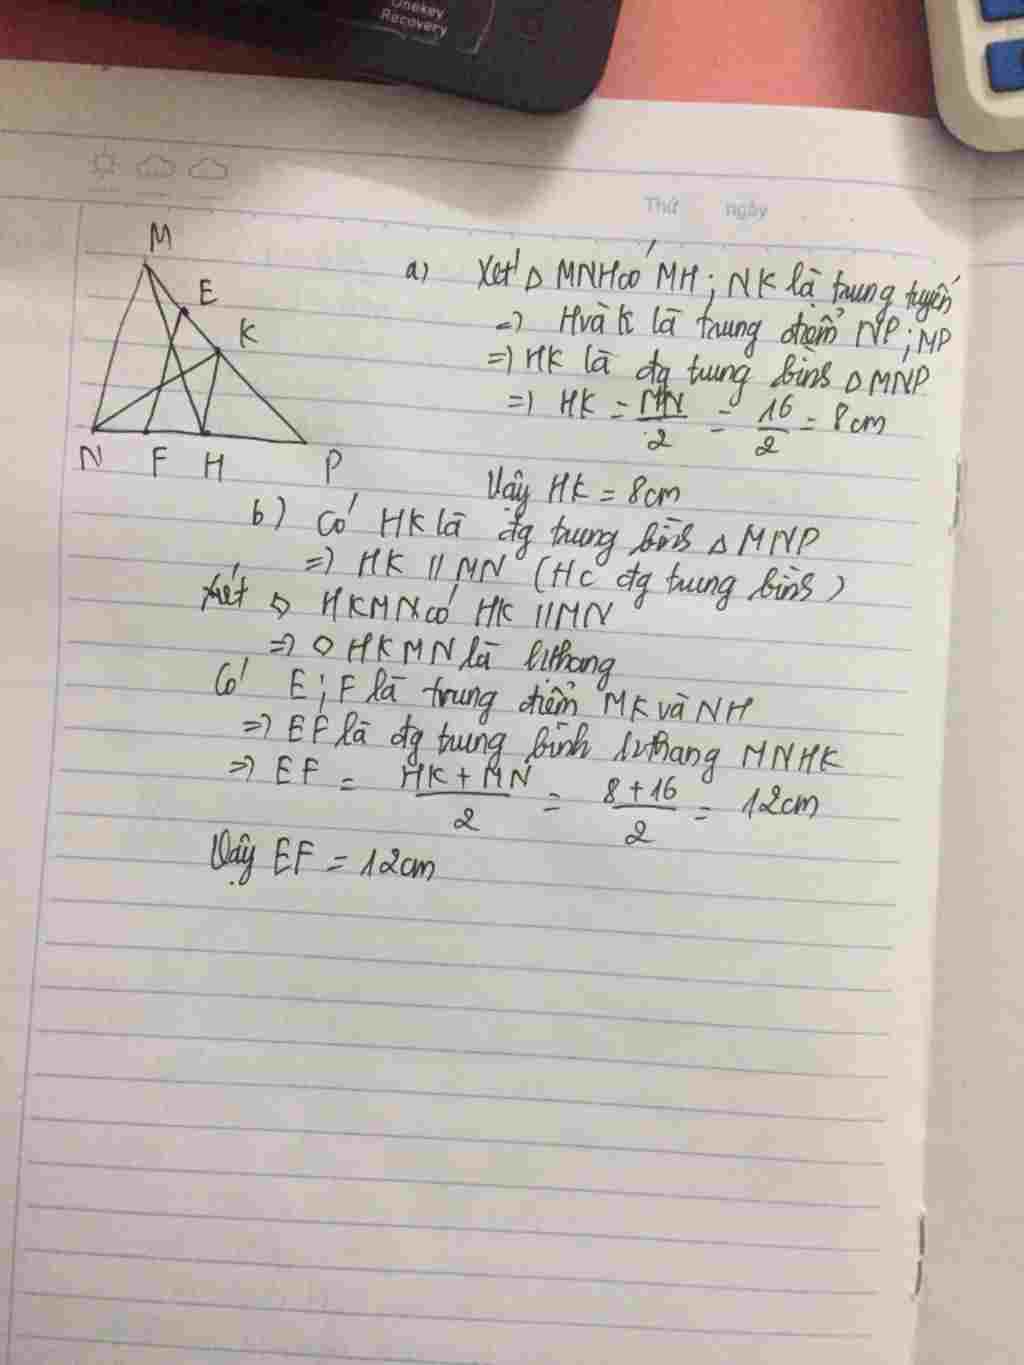 Onekey
Recovery
Thứ ngày
M
E
K
N F H P
a) Xét △ MNH có MH ; NK là trung tuyến
=> H và K là trung điểm NP ; MP
=> HK là đg trung bình △ MNP
=> HK = MN/2 = 16/2 = 8cm
Vậy HK = 8cm
b) Có HK là đg trung bình △ MNP
=> HK // MN (HC đg trung bình)
Xét ◇ HKMN có HK // MN
=> ◇ HKMN là hthang
Có E ; F là trung điểm MK và NH
=> EF là đg trung bình hthang MNHK
=> EF = HK + MN/2 = 8 + 16/2 = 12cm
Vậy EF = 12cm